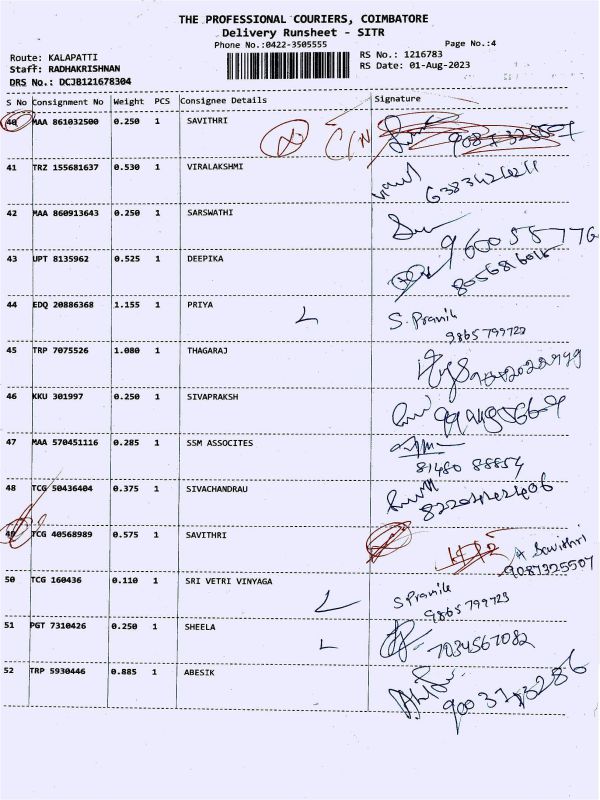 THE PROFESSIONAL COURIERS, COIMBATORE
Delivery Runsheet - SITR
Phone No.:0422-3505555 Page No.:4
Route: KALAPATTI RS No.: 1216783
Staff: RADHAKRISHNAN RS Date: 01-Aug-2023
DRS No.: DCJB121678304
S No Consignment No Weight PCS Consignee Details Signature
40 MAA 861032500 0.250 1 SAVITHRI
41 TRZ 155681637 0.530 1 VIRALAKSHMI
42 MAA 860913643 0.250 1 SARSWATHI
43 UPT 8135962 0.525 1 DEEPIKA
8056816015
44 EDQ 20886368 1.155 1 PRIYA S. Pranik
9865 799723
45 TRP 7075526 1.080 1 THAGARAJ
46 KKU 301997 0.250 1 SIVAPRAKSH
47 MAA 570451116 0.285 1 SSM ASSOCITES
81480 88854
48 TCG 50436404 0.375 1 SIVACHANDRAU
49 TCG 40568989 0.575 1 SAVITHRI A Savithri
9087325507
50 TCG 160436 0.110 1 SRI VETRI VINYAGA S Pranik
9865 799723
51 PGT 7310426 0.250 1 SHEELA 7034567082
52 TRP 5930446 0.885 1 ABESIK